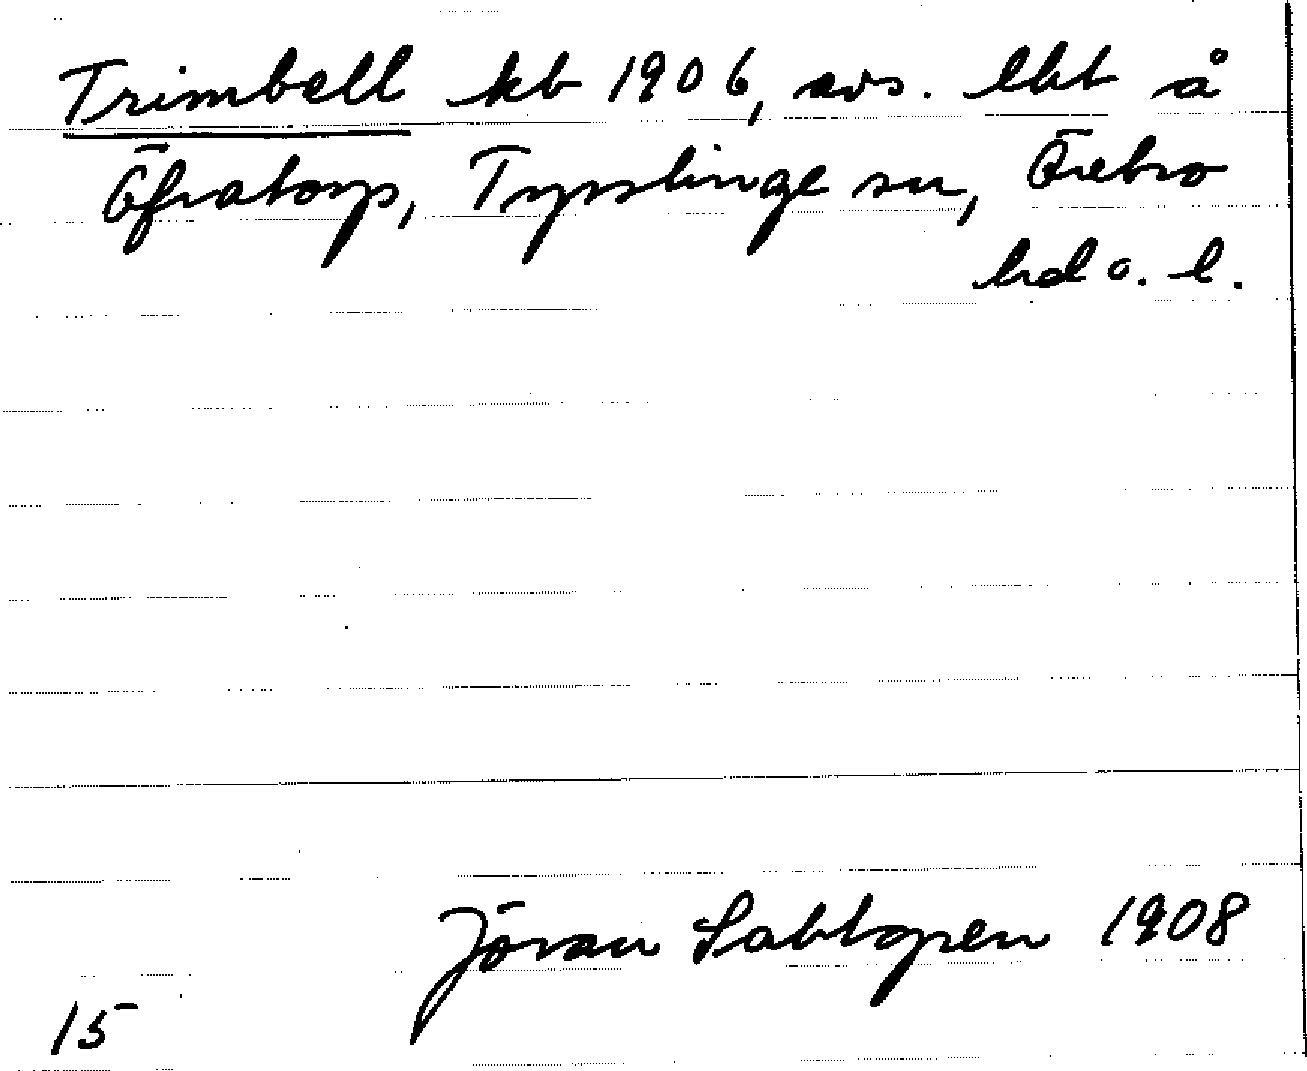 Trimbell kb 1906, avs. lht å
Öfratorp, Tysslinge sn, Örebro
hd o. l.
Jöran Sahlgren 1908
15